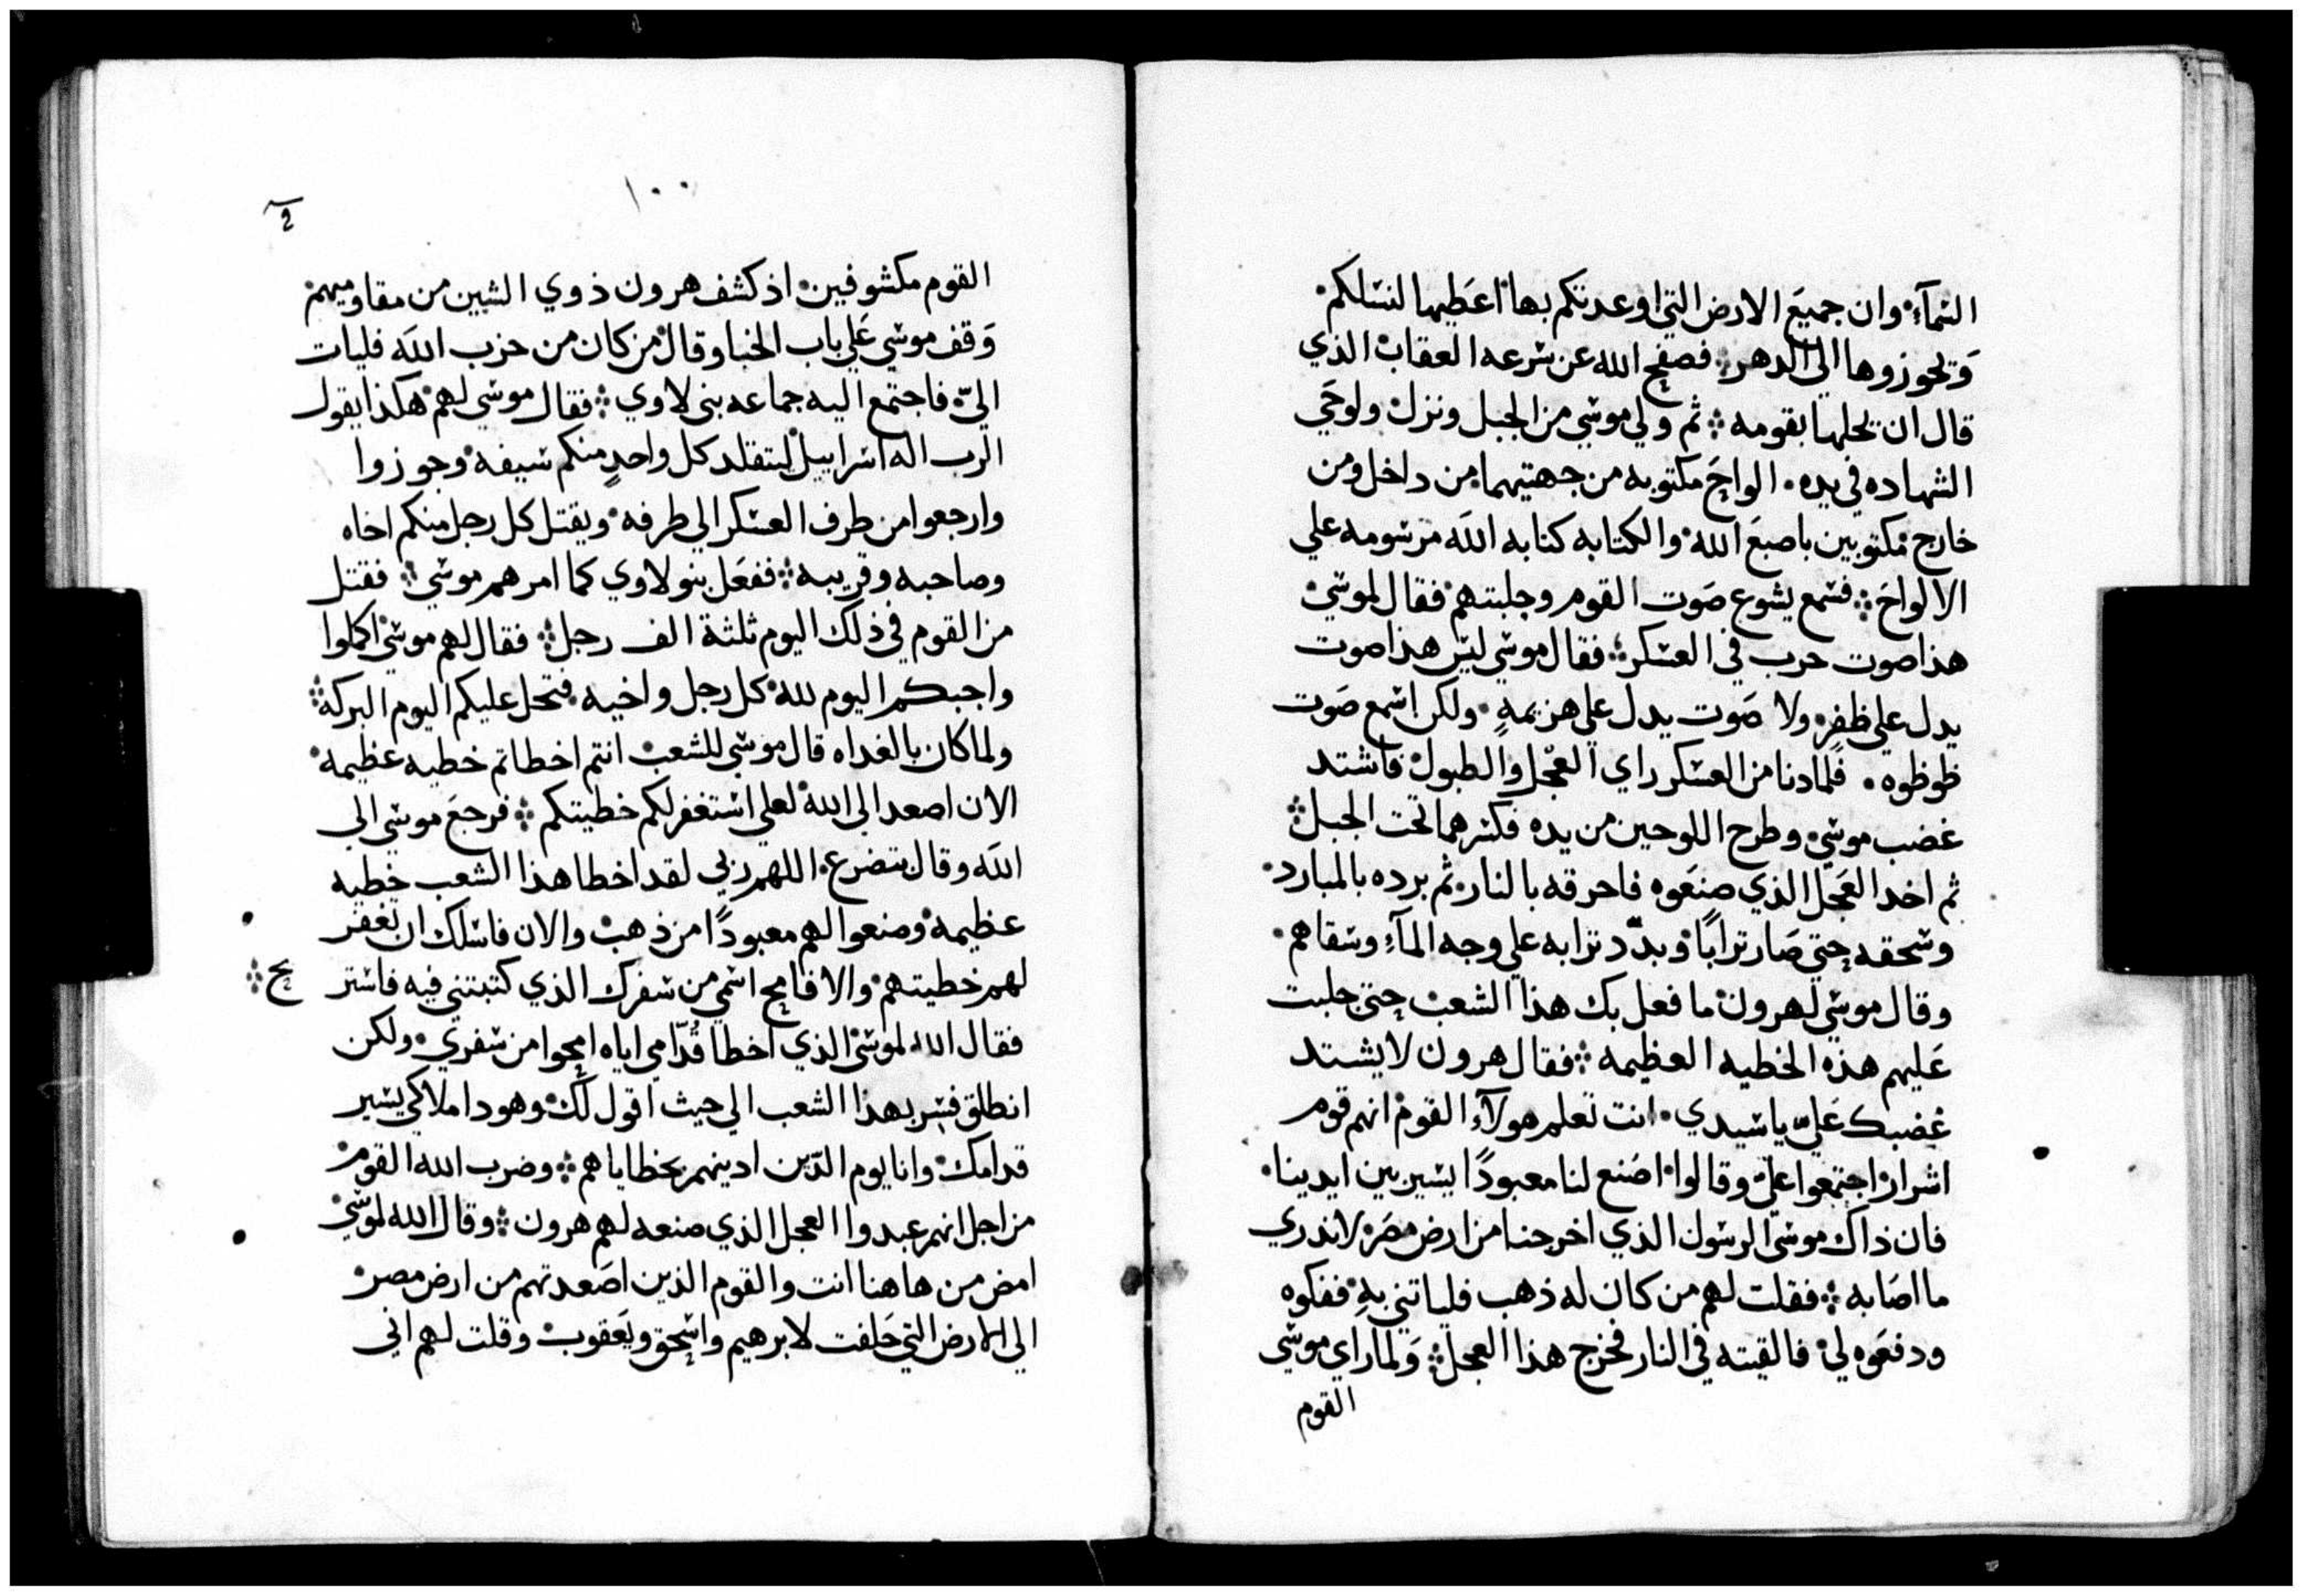 السمآء وان جميعَ الارض التي اوعدتكم بها اعَطيها لنسلكم
وَتحوزوها الي الدهر فصفح الله عن سرعه العقاب الذي
قال ان يحلها بقومه ثم ولي موسي من الجبل ونزل ولوحَي
الشهاده في يده الواحَ مكتوبه من جهتيهما من داخل ومن
خارج مكتوبين باصبعَ الله والكتابه كتابه الله مرسومه علي
الالواحَ فسمع يشوع صَوت القوم وجلبتهم فقال لموسي
هذا صوت حرب في العسكر فقال موسي ليس هذا صوت
يدل علي ظفرٍ ولا صَوت يدل علي هزيمهٍ ولكن اسمع صَوت
ظوظوه فلما دنا من العسكر راي العجل والطبول فاشتد
غضب موسي وطرح اللوحين من يده فكسرهما تحت الجبل
ثم اخد العَجل الذي صنعَوه فاحرقه بالنار ثم برده بالمبارد
وسحقه حتي صَار ترابًا وبدّد ترابه علي وجه المآء وسقاهم
وقال موسي لهرون ما فعل بك هذا الشعب حتي جلبت
عَليهم هذه الخطيه العظيمه فقال هرون لا يشتد
غضبك عَليّ يا سيدي انت تعلم هولآء القوم انهم قوم
اشرار اجتمعوا عليّ وقالوا اصَنع لنا معبودًا يسير بين ايدينا
فان ذاك موسي الرسول الذي اخرجنا من ارض مصَر لا ندري
ما اصَابه فقلت لهم من كان له ذهب فلياتني بهِ ففكوه
ودفعَوه لي فالقيته في النار فخرج هذا العجل وَلما راي موسي
القوم
١٠٠
القوم مكشوفين اذ كشف هرون ذوي الشين من مقاوميهم
وَقف موسي عَلي باب الخبا وقال من كان من حزب اللَه فليات
اليّ فاجتمع اليه جماعه بني لاوي فقال موسي لهم هكذا يقول
الرب اله اسراييل ليتقلد كل واحدٍ منكم سيفه وجوزوا
وارجعوا من طرف العسكر الي طرفه ويقتل كل رجل منكم اخاه
وصاحبه وقريبه ففعَل بنو لاوي كما امرهم موسي فقتل
من القوم في ذلك اليوم ثلثة الف رجل فقال لهم موسي اكملوا
واجبكم اليوم لله كل رجل واخيه فتحل عليكم اليوم البركه
ولما كان بالغداه قال موسي للشعب انتم اخطاتم خطيه عظيمه
الان اصعد الي الله لعلي استغفر لكم خطيتكم فرجعَ موسي الي
اللَه وقال بتضرع اللهم ربي لقد اخطا هذا الشعب خطيه
عظيمه وصنعوا لهم معبودًا من ذهب والان فاسلك ان تغفر
لهم خطيتهم والا فامح اسمي من سفرك الذي كتبتني فيه فاستر
فقال الله لموسي الذي اخطا قُدّامي اياه امحوا من سفري ولكن
انطلق فسر بهذا الشعب الي حيث اقول لك وهودا ملاكي يسير
قدامك وانا يوم الدّين ادينهم بخطاياهم وضرب الله القوم
من اجل انهم عبدوا العجل الذي صنعه لهم هرون وقال الله لموسي
امض من هاهنا انت والقوم الذين اصَعدتهم من ارض مصر
الي الارض التي حَلفت لابرهيم واسحق ويَعقوب وقلت لهم اني